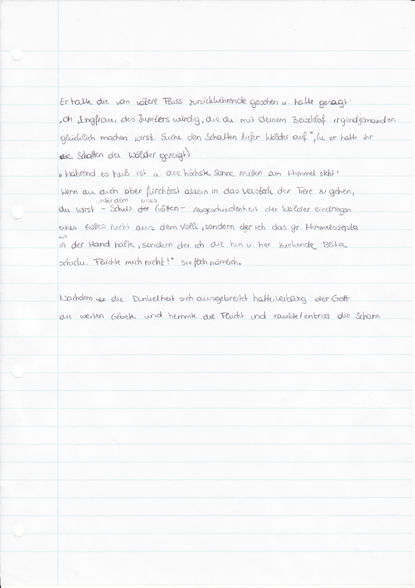 Er hatte die von Vaters Fluss zurückkehrende gesehen u. hatte gesagt:
"oh Jungfrau, des Jupiters würdig, die du mit deinem Beischlaf irgendjemanden
glücklich machen wirst. Suche den Schatten tiefer Wälder auf", (u. er hatte ihr
die Schatten der Wälder gezeigt)
"Während es heiß ist u. die höchste Sonne mitten am Himmel steht!
Wenn du dich aber fürchtest allein in das Versteck der Tiere zu gehen,
unter dem eines
du wirst - Schutz der Götter - Abgeschiedenheit der Wälder eindringen
eines Gottes nicht aus dem Volk, sondern der ich das gr. Himmelszepter
in der Hand halte, sondern der ich die hin u. her zuckende Blitze
schicke. Flüchte mich nicht!" sie floh nämlich.
Nachdem er die Dunkelheit sich ausgebreitet hatte, verbarg der Gott
die weiten Gebiete und hemmte die Flucht und raubte/entriss die Scham